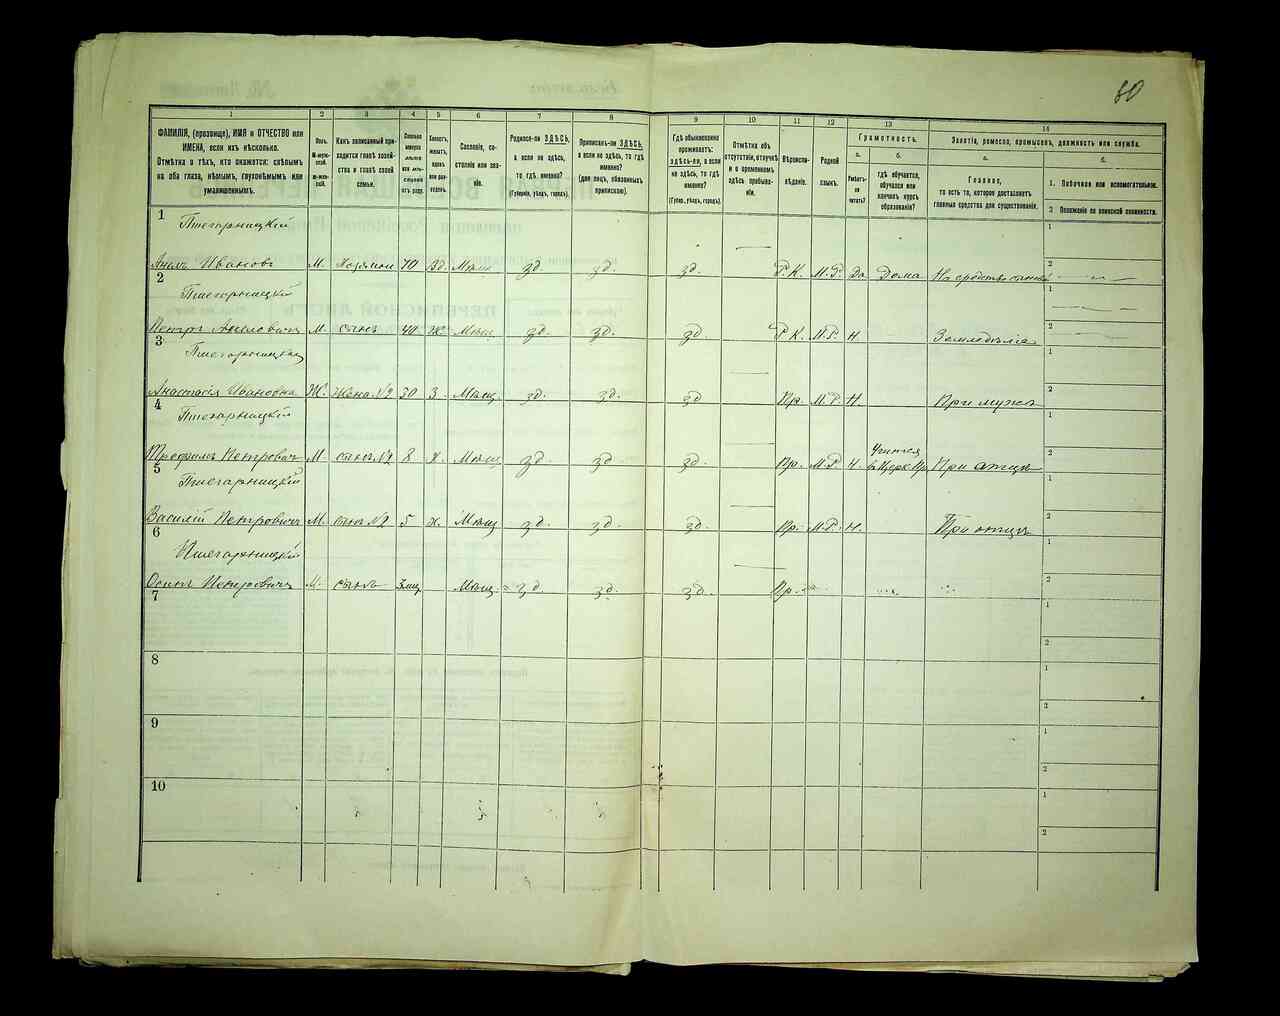 60
1 2 3 4 5 6 7 8 9 10 11 12 13 14
ФАМИЛІЯ, (прозвище), ИМЯ и ОТЧЕСТВО или ИМЕНА, если ихъ нѣсколько.
Отмѣтка о тѣхъ, кто окажется: слѣпымъ на оба глаза, нѣмымъ, глухонѣмымъ или умалишеннымъ.
Полъ. М-мужской. Ж-женскій.
Какъ записанный приходится главѣ хозяйства и главѣ своей семьи.
Сколько минуло лѣтъ или мѣсяцевъ отъ роду.
Холостъ, женатъ, вдовъ или разведенъ.
Сословіе, состояніе или званіе.
Родился-ли ЗДѢСЬ, а если не здѣсь, то гдѣ именно?
(Губернія, уѣздъ, городъ).
Приписанъ-ли ЗДѢСЬ, а если не здѣсь, то гдѣ именно?
(для лицъ, обязанныхъ припискою).
Гдѣ обыкновенно проживаетъ: здѣсь-ли, а если не здѣсь, то гдѣ именно?
(Губер., уѣздъ, городъ).
Отмѣтка объ отсутствіи, отлучкѣ и о временномъ здѣсь пребываніи.
Вѣроисповѣданіе.
Родной языкъ.
Грамотность.
а. Умѣетъ-ли читать?
б. гдѣ обучается, обучался или кончилъ курсъ образованія?
Занятіе, ремесло, промыселъ, должность или служба.
а. Главное, то есть то, которое доставляетъ главныя средства для существованія.
б.
1. Побочное или вспомогательное.
2 Положеніе по воинской повинности.
1 Пшегарницкій
Иванов М. Хозяинъ 70 Вд. Мѣщ зд. зд. зд. Р.К. М.Р. Да Дома
2 Пшегарницкій
Петръ М. сынъ 40 Ж Мѣщ зд. зд. зд Р.К. М.Р. Н. Земледѣліе
3 Пшегарницкая
Анастасія Ивановна Ж. Жена №2 30 З. Мѣщ. зд. зд. зд Пр. М.Р. Н. При мужѣ
4 Пшегарницкій
Трофимъ Петровичъ М. сынъ №2 8 Х. Мѣщ зд зд зд. Пр. М.Р. Н. Учится въ Церк. При отцѣ
5 Пшегарницкій
Василій Петровичъ М. сынъ №2 5 Х. Мѣщ зд. зд. зд. Пр. М.Р. Н. При отцѣ
6 Пшегарницкій
Осипъ Петровичъ М. сынъ 3 мц Мѣщ. зд. зд. зд. Пр.
7
8
9
10